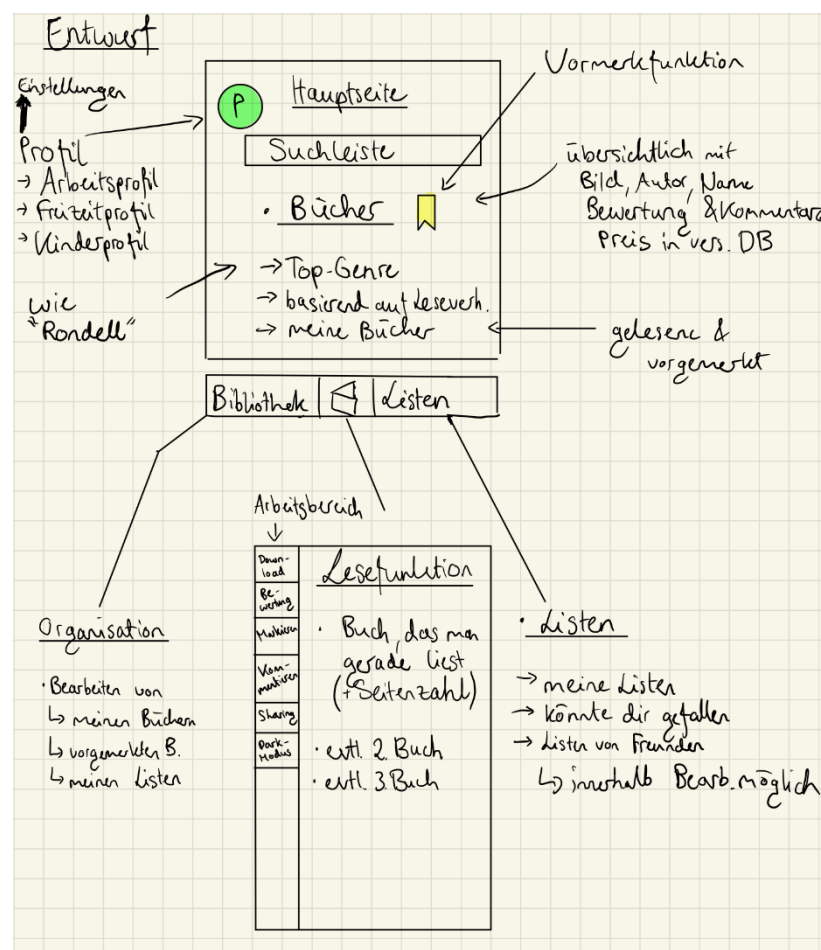 Entwurf
Einstellungen
Profil
→ Arbeitsprofil
→ Freizeitprofil
→ Kinderprofil
wie
"Rondell"
P
Hauptseite
Suchleiste
• Bücher
→ Top-Genre
→ basierend auf Leseverh.
→ meine Bücher
Vormerkfunktion
übersichtlich mit
Bild, Autor, Name
Bewertung & Kommentare
Preis in vers. DB
gelesene &
vorgemerkt
Bibliothek
Listen
Arbeitsbereich
Down-
load
Be-
wertung
Markieren
Kom-
mentieren
Sharing
Dark-
Modus
Lesefunktion
• Buch, das man
gerade liest
(+Seitenzahl)
• evtl. 2. Buch
• evtl. 3. Buch
Organisation
• Bearbeiten von
↳ meinen Büchern
↳ vorgemerkten B.
↳ meinen Listen
• Listen
→ meine Listen
→ könnte dir gefallen
→ Listen von Freunden
↳ innerhalb Bearb. möglich